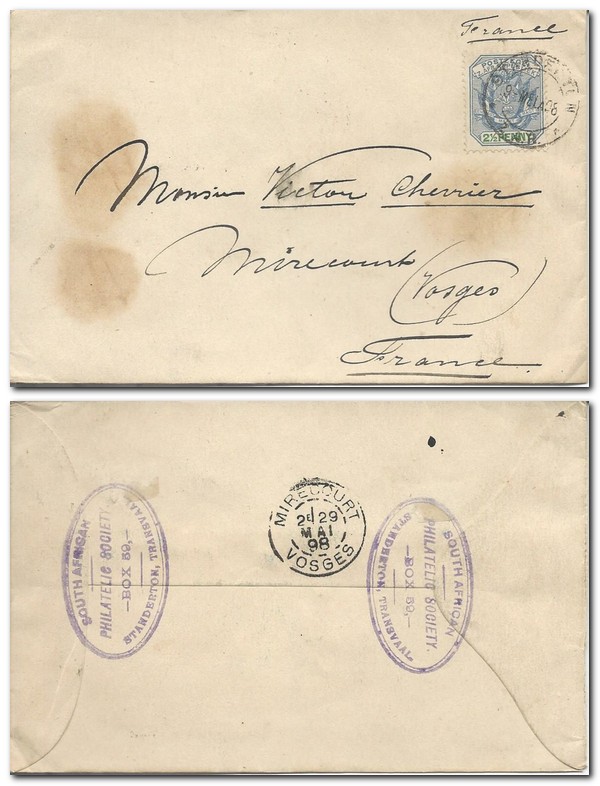 France
2½ PENNY
Z.A.R.
Monsieur Victor Chevrier
Mirecourt
(Vosges)
France
SOUTH AFRICAN
PHILATELIC SOCIETY.
—BOX 59,—
STANDERTON, TRANSVAAL.
MIRECOURT
2E 29
MAI
98
VOSGES
SOUTH AFRICAN
PHILATELIC SOCIETY.
—BOX 59,—
STANDERTON, TRANSVAAL.